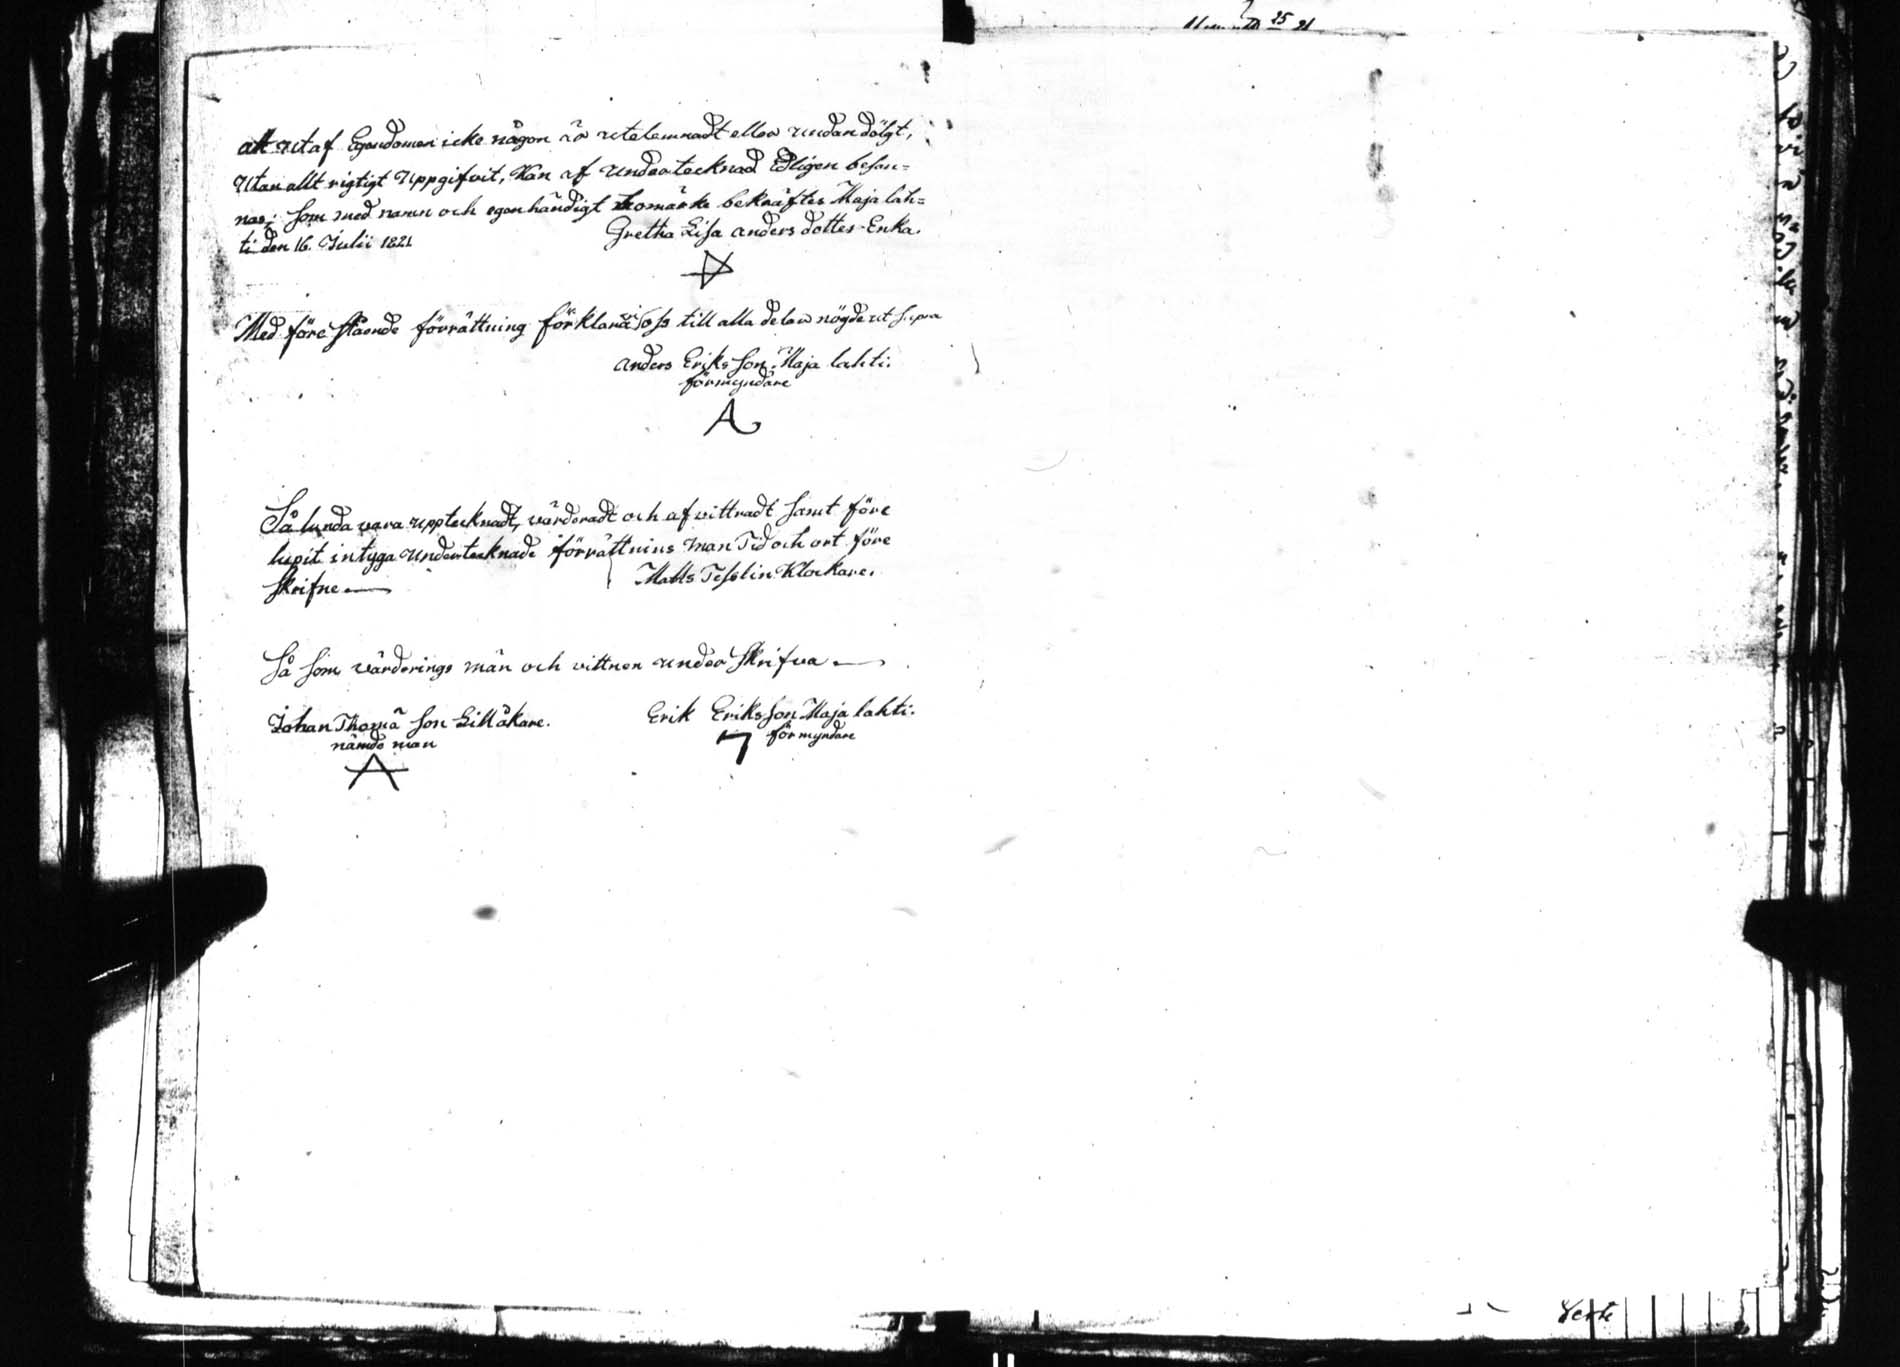 att utaf Egendomen icke någon är utelemnadt eller undandölgt,
Utan allt rigtigt uppgifvit, kan af undertecknad Edligen besan=
nas; som med namn och egenhändigt bomärke bekräftes Majalah=
ti den 16. Julii 1821
Gretha Lisa anders dotter Enka.
Med före stående förrättning förklara oss till alla delar nögde ut supra
anders Eriks son Maja lahti.
förmyndare
A
Så lunda vara upptecknadt, värderadt och af vittradt samt före
lupit intyga undertecknade förrättnins man Tid och ort före
skrifne
Matts Tesslin Klockare.
Så som värderings män och vittnen under skrifva
Johan Thomä son Lillåkare.
nämde man
A
Erik Eriksson Maja lahti.
förmyndare